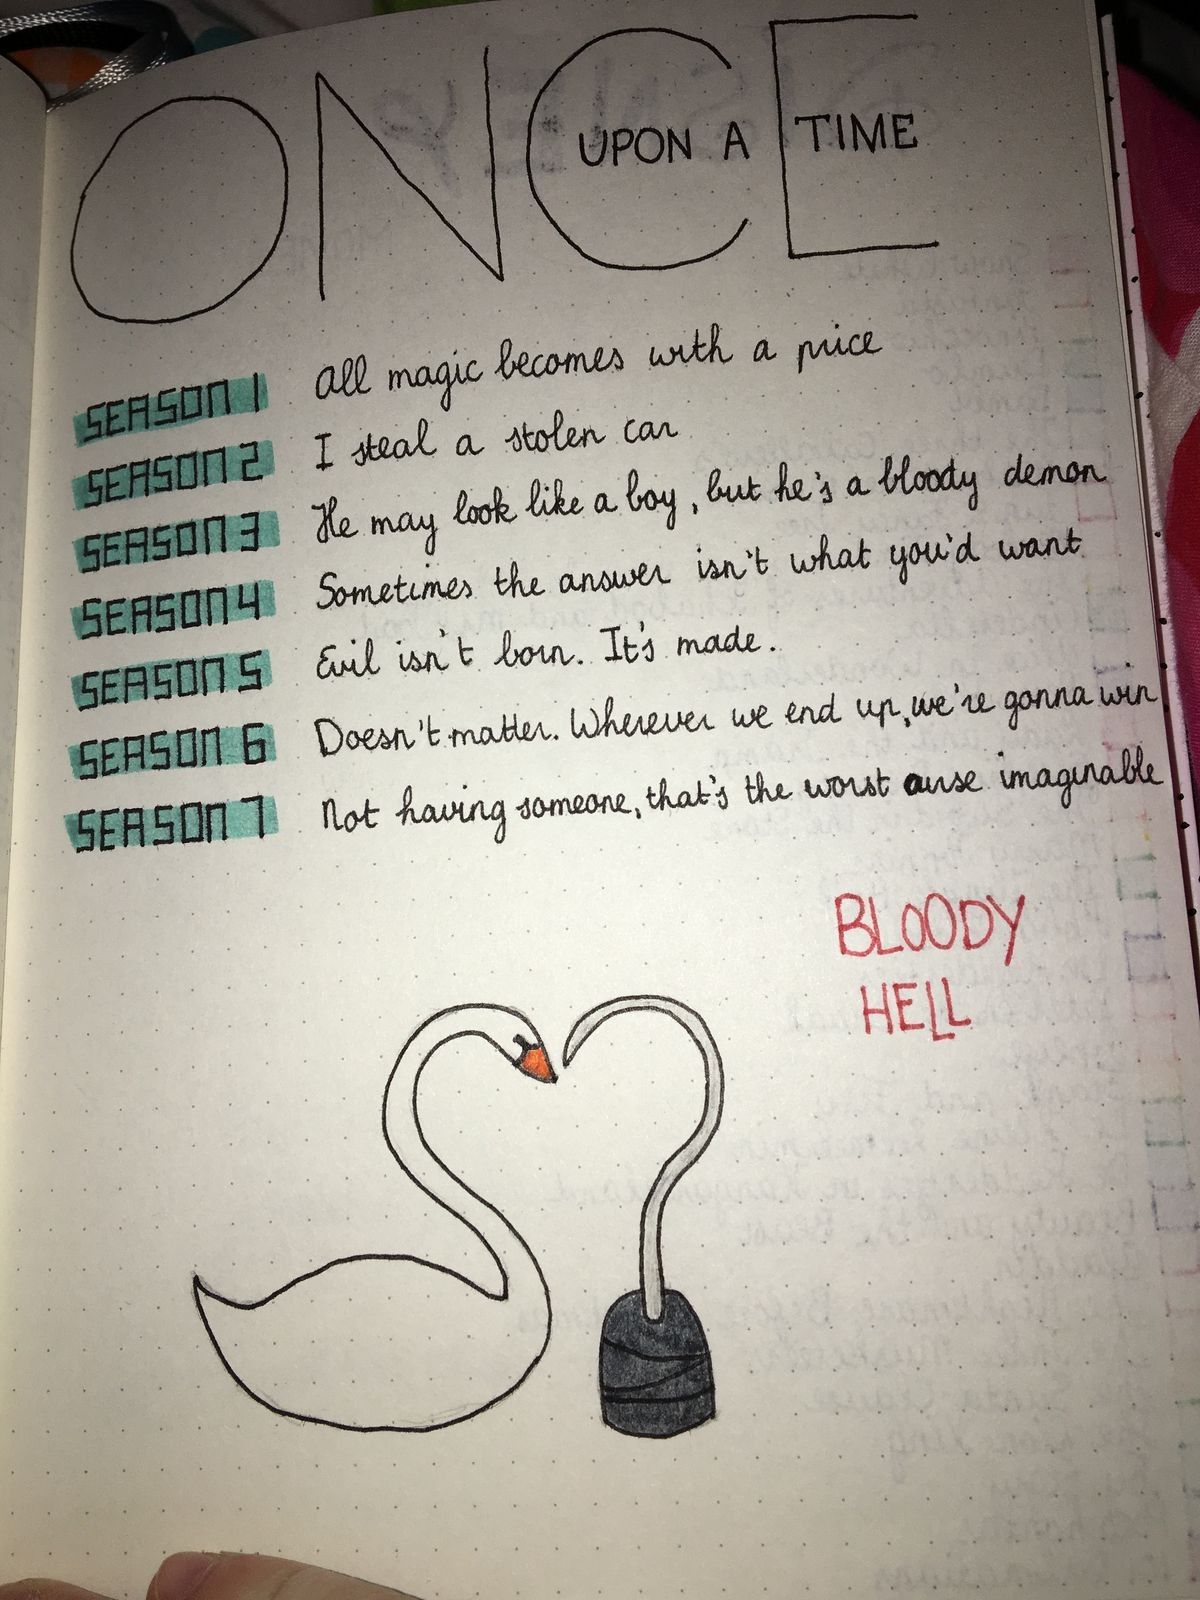 ONCE
UPON A TIME
SEASON 1 All magic becomes with a price
SEASON 2 I steal a stolen car
SEASON 3 He may look like a boy, but he's a bloody demon
SEASON 4 Sometimes the answer isn't what you'd want
SEASON 5 Evil isn't born. It's made.
SEASON 6 Doesn't matter. Wherever we end up, we're gonna win
SEASON 7 Not having someone, that's the worst curse imaginable
BLOODY
HELL